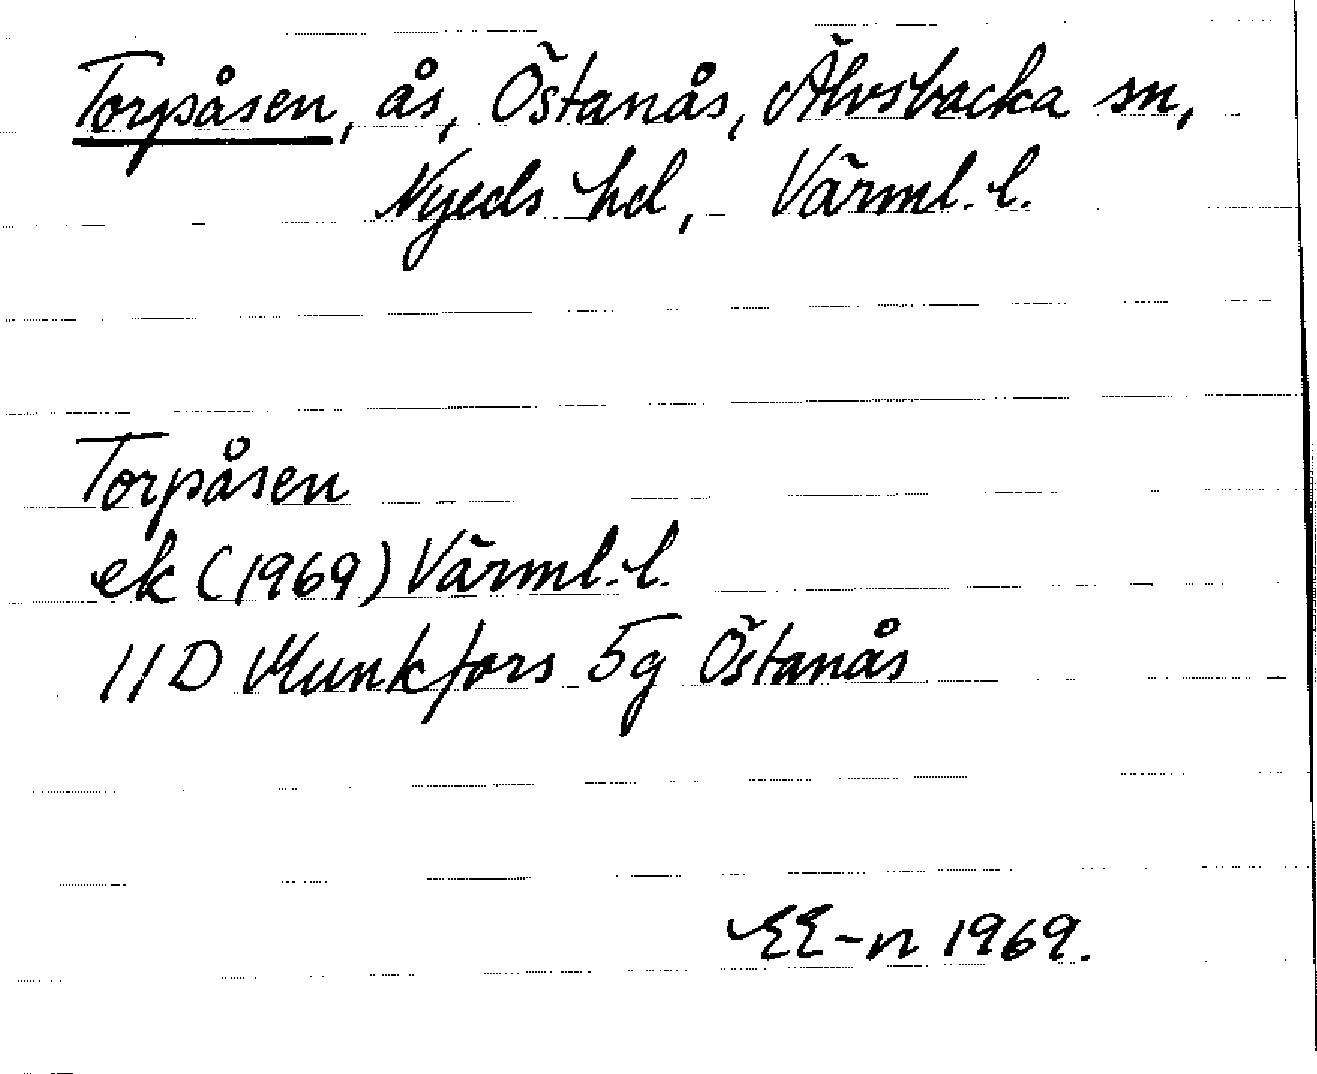 Torpåsen, ås, Östanås, Älvsbacka sn,
Nyeds hd, Värml. l.
Torpåsen
ek (1969) Värml. l.
11D Munkfors 5g Östanås
EE-n 1969.